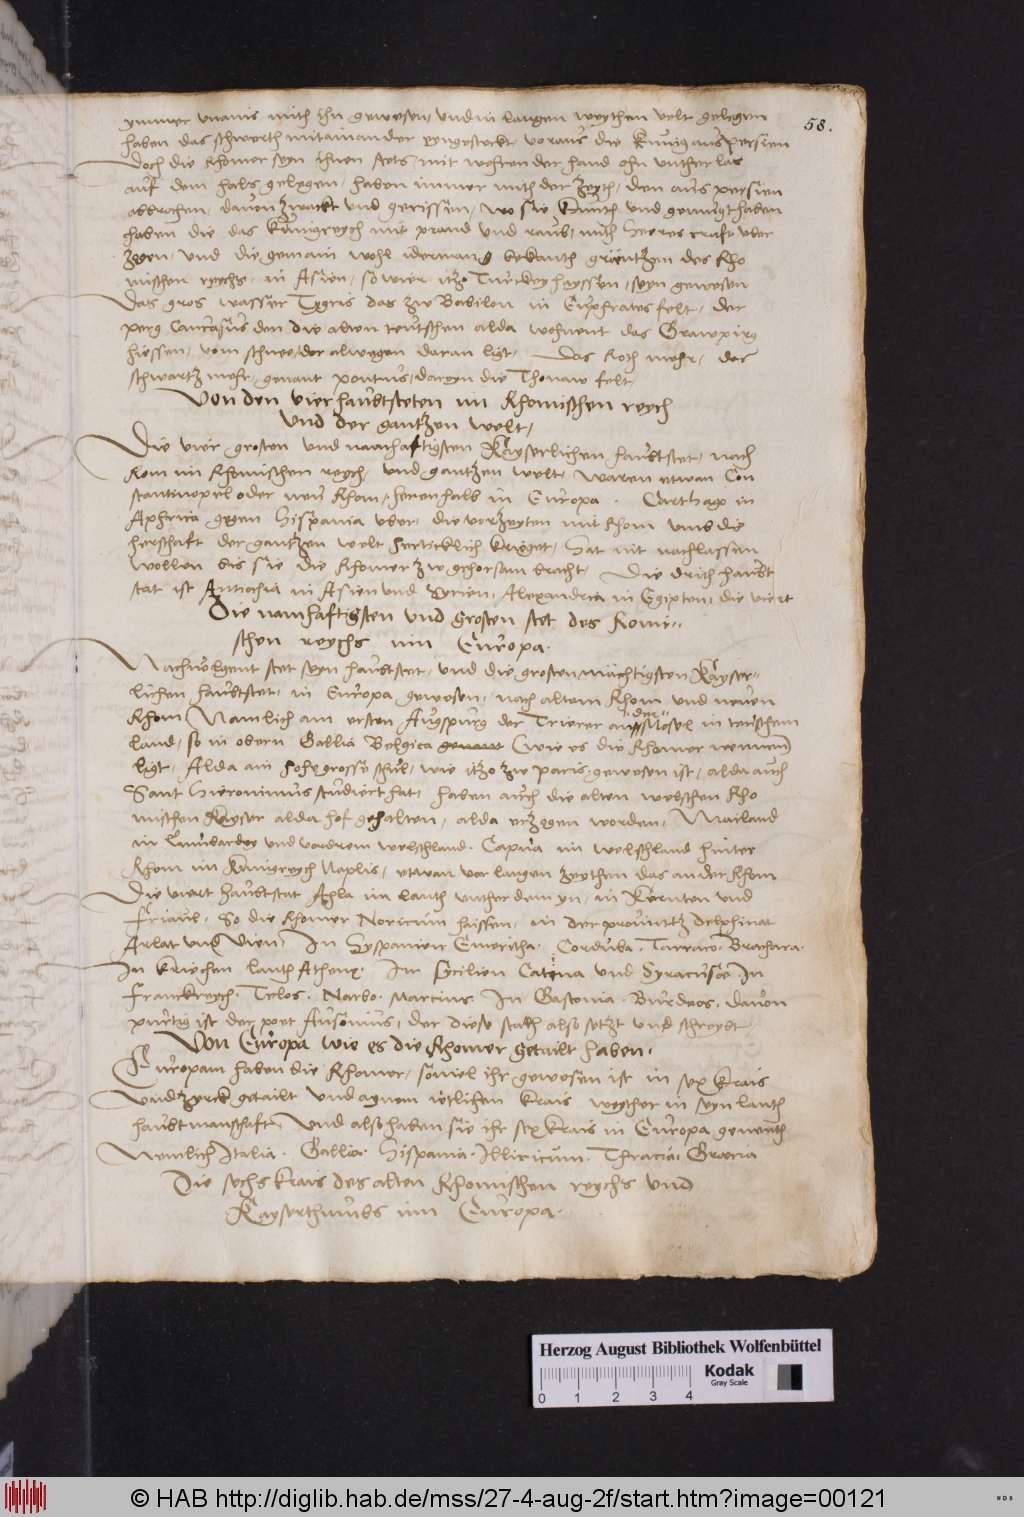 58.
ymmer unains mith ihn gewesen, und in langen weythen velt gelegen
haben das schwerth mitainander eyngesteckt voraus die Kunig aus persien
Doch die Rhomer seyn ihnen stets mit wehrender hand ohn unther las
auf dem hals gelegen, haben immer mith der Zeyth, den aus persien
abbrochen, davon zwackt und gerissen, wo sie kunth und gemugt haben
haben die das Kunigreych mit prand und raub, mith heeres craft uber
zogen, und die gemain wohl iderman bekanth grentzen des Rho
mischen reychs, in Asien, so wier itzo Turckey hayssen, seyn gewesen
Das gros wasser Tygris das zw Babilon in Euphrates felt, der
perg Caucasus den die alten teutschen alda wohnent das Grawpirg
hiessen, vom schnee, der alwegen daran ligt, Das Roth mehr, das
schwartz mehr, genant pontus, dareyn die Thonaw felt
Von den vier haubtsteten im Rhomischen reych
und der gantzen welt,
Die vier grosten und namhaftigsten Kayserlichen haubtstet, nach
Rom im Rhomischen reych, und gantzen welt, waren etwan Con
stantinopel oder neu Rhom, herenhalb in Europa. Carthago in
Aphrica gegen Hispania uber, die vorzeyten mit Rhom umb die
herschaft der gantzen welt herticklich krieget, hat nit nachlassen
wollen bis sie die Rhomer zw gehorsam bracht, Die drith haubt
stat ist Antiochia in Asien und Syrien, Alexandria in Egipten, die viert
Die namhaftigsten und grosten stet des Romi=
schen reychs im Europa.
Nachvolgent stet seyn haubtstet, und die grosten mächtigsten Kayser=
lichen haubtstet, in Europa gewesen, nach altem Rhom und neuen
Rhom Namlich am ersten Augspurg der Trierer an der Mosel in teuschem
land, so in obern Gallia Belgica genant (wie es die Rhomer nennen)
ligt, Alda ain hohe grosse schul, wie itzo zw paris, gewesen ist, alda auch
Sant Hieronimus studiert hat, haben auch die alten welschen Rho
mischen Kayser alda hof gehalten, alda erzogen worden, Mailand
in Lumbardey und vordrem welschland. Capua im welschland hinter
Rhom im Kunigreych Naplis, etwan vor langen zeythen das ander Rhom
Die viert haubtstat Agla im lanth unther dem yn, in Kernten und
Friaul. So die Rhomer Noricum haissen, in der provintz delphinat
Arlat und Vien, In Hyspanien Emeritha. Corduba. Tarraco. Brachara.
In kriechen lanth Athene. Im Sycilien Catina und Syracusae. In
Franckreych. Tolos. Narbo. Marcius. In Gasconia. Burdeos. davon
purtig ist der poet Ausonius, der diese stath also setzt und schreybt
Von Europa wie es die Rhomer getailt haben.
Europam haben die Rhomer, soviel ihr gewesen ist in sex krais
und zyrck getailt und aynem itlichen krais weyther in seyn lanth
haubtmanschaft, und also haben sie ihr sex krais in Europa genenth
Nemlich Italia. Gallia. Hispania. Illiricum. Thracia. Grecia
Die sechs krais des alten Rhomischen reychs und
Kayserthumbs im Europa.
Herzog August Bibliothek Wolfenbüttel
Kodak
Gray Scale
0 1 2 3 4
© HAB http://diglib.hab.de/mss/27-4-aug-2f/start.htm?image=00121